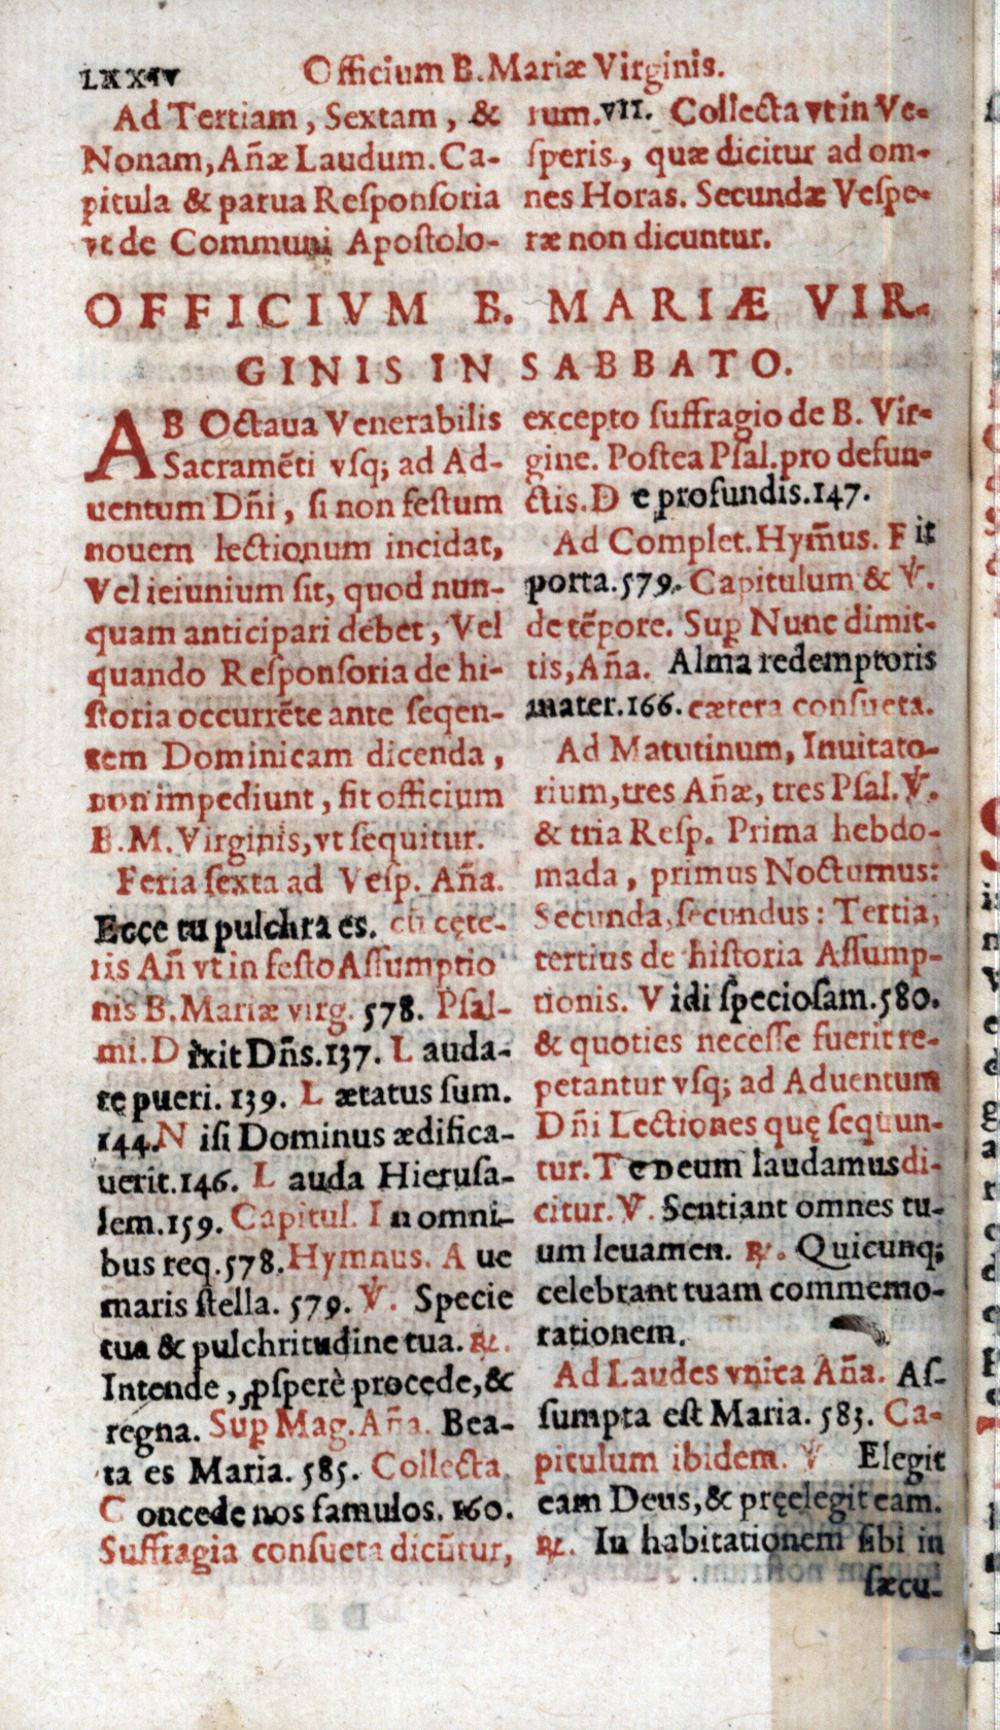 LXXIV Officium B. Mariæ Virginis.
Ad Tertiam, Sextam, &
Nonam, Añæ Laudum. Ca-
pitula & parua Reſponſoria
vt de Communi Apoſtolo-
rum. VII. Collecta vt in Ve-
ſperis, quæ dicitur ad om-
nes Horas. Secundæ Veſpe-
ræ non dicuntur.
OFFICIVM B. MARIÆ VIR-
GINIS IN SABBATO.
AB Octaua Venerabilis
Sacramẽti vſq; ad Ad-
uentum Dñi, ſi non feſtum
nouem lectionum incidat,
Vel ieiunium ſit, quod nun-
quam anticipari debet, Vel
quando Reſponſoria de hi-
ſtoria occurrẽte ante ſeqen-
tem Dominicam dicenda,
non impediunt, fit officium
B. M. Virginis, vt ſequitur.
Feria ſexta ad Veſp. Aña.
Ecce tu pulchra es. cũ cęte-
ris Añ vt in feſto Aſſumptio
nis B. Mariæ virg. 578. Pſal-
mi. Dixit Dñs. 137. Lauda-
te pueri. 139. Lætatus ſum.
144. Niſi Dominus ædifica-
uerit. 146. Lauda Hieruſa-
lem. 159. Capitul. In omni-
bus req. 578. Hymnus. Aue
maris ſtella. 579. ℣. Specie
tua & pulchritudine tua. ℟.
Intende, ꝓſperè procede, &
regna. Suꝑ Mag. Aña. Bea-
ta es Maria. 585. Collecta
Concede nos famulos. 160.
Suffragia conſueta dicũtur,
excepto ſuffragio de B. Vir-
gine. Poſtea Pſal. pro defun-
ctis. De profundis. 147.
Ad Complet. Hym̃us. Fit
porta. 579. Capitulum & ℣.
de tẽpore. Suꝑ Nunc dimit-
tis, Aña. Alma redemptoris
mater. 166. cætera conſueta.
Ad Matutinum, Inuitato-
rium, tres Añæ, tres Pſal. ℣.
& tria Reſp. Prima hebdo-
mada, primus Nocturnus:
Secunda, ſecundus: Tertia,
tertius de hiſtoria Aſſump-
tionis. Vidi ſpecioſam. 580.
& quoties neceſſe fuerit re-
petantur vſq; ad Aduentum
Dñi Lectiones quę ſequun-
tur. Te Deum laudamus di-
citur. ℣. Sentiant omnes tu-
um leuamen. ℟. Quicunq;
celebrant tuam commemo-
rationem.
Ad Laudes vnica Aña. Aſ-
ſumpta eſt Maria. 583. Ca-
pitulum ibidem. ℣ Elegit
eam Deus, & pręelegit eam.
℟. In habitationem ſibi in
ſæcu-